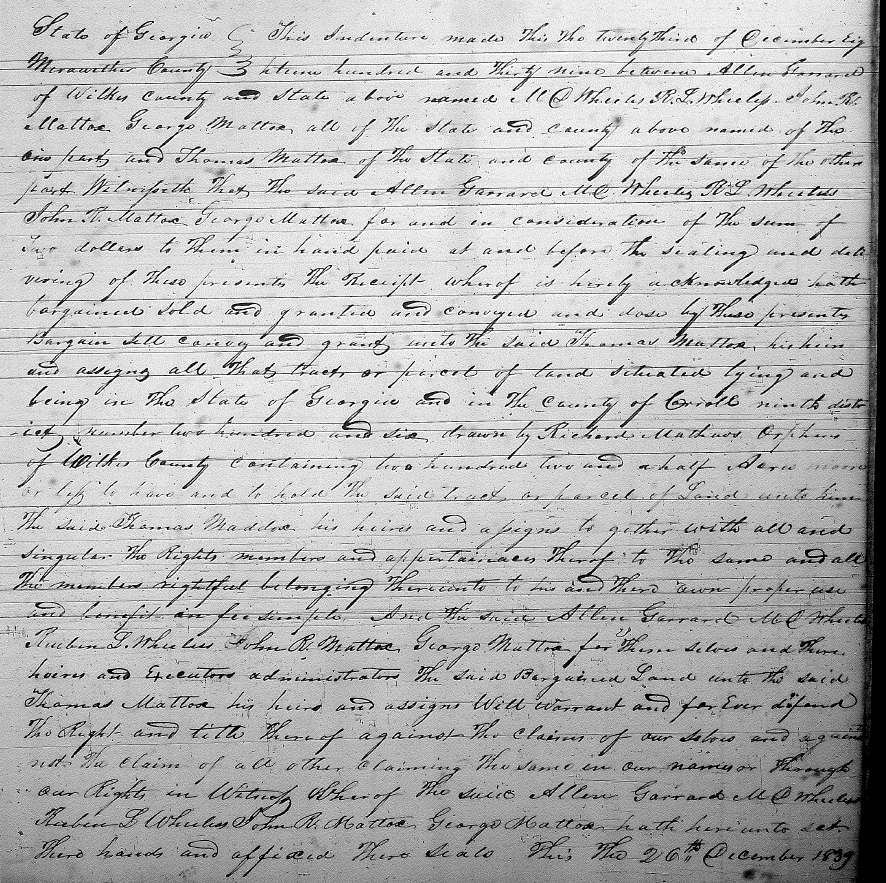 State of Georgia } This Indenture made This the twenty Third of December Eig
Merawether County } hteen hundred and Thirty nine between Allen Garrard
of Wilkes county and State above named M C Wheeles R. L. Wheeless John R.
Mattox George Mattox all of the State and county above named of the
one part and Thomas Mattox of the State and county of the same of the other
part Witnesseth That the said Allen Garrard M C. Wheeles R L. Wheeless
John R. Mattox George Mattox for and in consideration of the sum of
Two dollars to Them in hand paid at and before the sealing and deli
vering of These presents the Receipt wherof is hereby acknowledged hath
bargained sold and granted and conveyed and dose by These presents
Bargain Sell convey and grant unto the said Thomas Mattox his heirs
and assigns all That tract or percel of land situated lying and
being in the State of Georgia and in the county of Crroll ninth distr
ict number two hundred and six drawn by Richard Mathews Orphans
of Wilkes County containing two hundred two and a half Acres more
or less to have and to hold the said tract or parcel of Land unto him
The said Thomas Maddox his heirs and assigns to gether with all and
singular the Rights members and appertainaces Therof to the same and all
the members rightful belonging Thereunto to his and There own proper use
and benefit in fee simple And the said Allen Garrard M C Wheeles
Reuben L. Wheeless John R. Mattox George Mattox for Them selves and There
heires and Executors administrators The said Bargained Land unto the said
Thomas Mattox his heirs and assigns Will Warrant and for Ever defend
the Right and title Thereof against the claims of our selves and again
nst the claim of all other claiming the same in our names or Through
our Rights in Witness Wherof the said Allen Garrard M C Wheeless
Reuben L Wheeless John R. Mattox George Mattox hath hereunto set
There hands and affixed There seals This the 26th December 1839